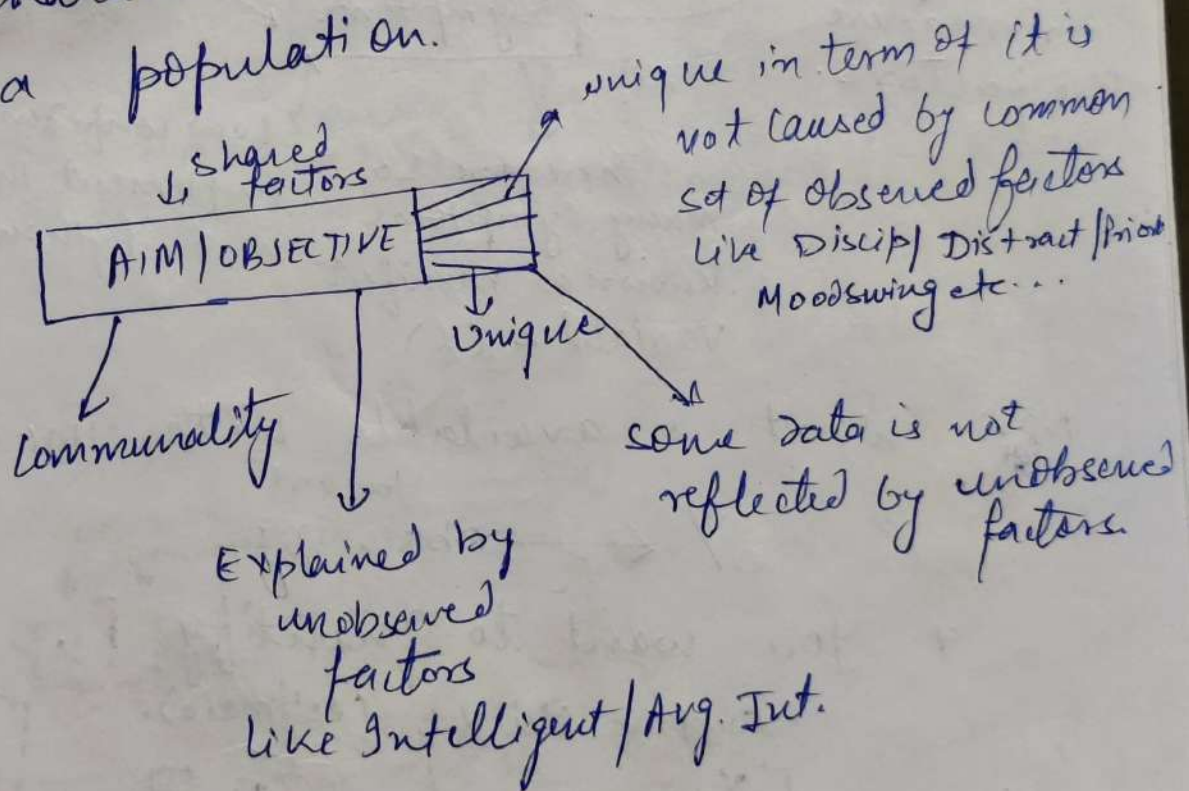 a population.
shared
factors
AIM/OBJECTIVE
Unique
unique in term of it is
not caused by common
set of observed factors
like Discip/ Distract/
Moodswing etc...
Communality
some data is not
reflected by unobserved
factors.
Explained by
unobserved
factors
like Intelligent/Avg. Int.